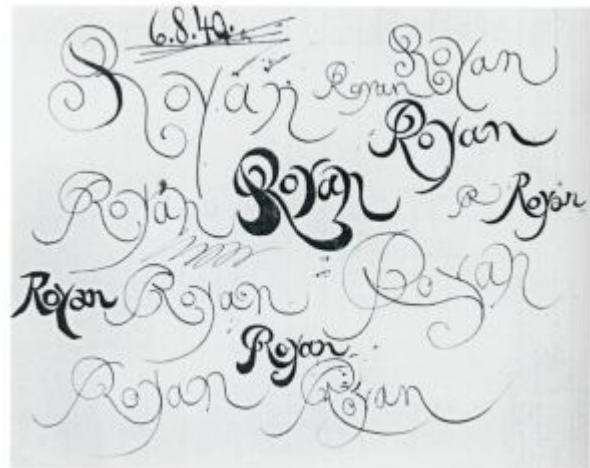 6.8.40.
Royan Royan Royan
Royan
Royan Royan R Royan
Royan Royan Royan
Royan
Royan Royan